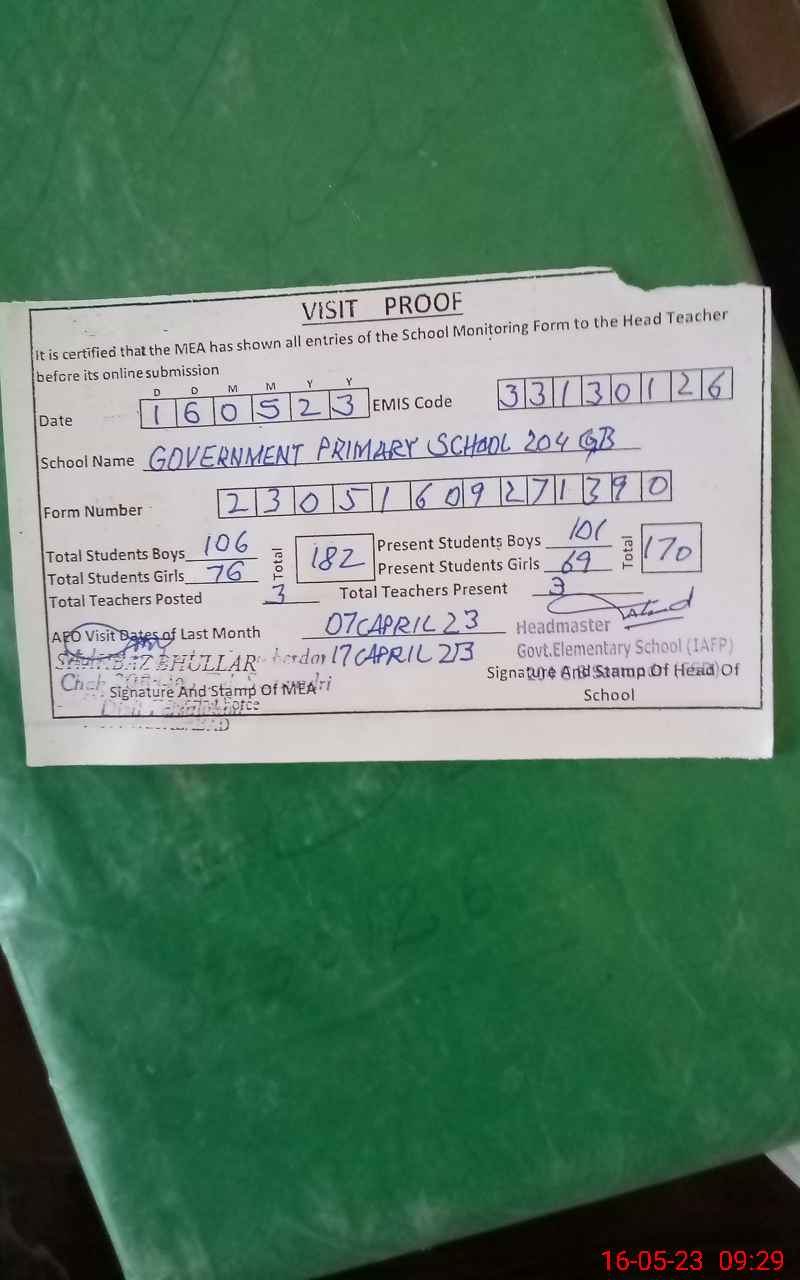 VISIT PROOF
It is certified that the MEA has shown all entries of the School Monitoring Form to the Head Teacher
before its online submission
D D M M Y Y
Date 1 6 0 5 2 3 EMIS Code 3 3 1 3 0 1 2 6
School Name GOVERNMENT PRIMARY SCHOOL 204 GB
Form Number 2 3 0 5 1 6 0 9 2 7 1 3 9 0
Total Students Boys 106 Total 182 Present Students Boys 101 Total 170
Total Students Girls 76 Present Students Girls 69
Total Teachers Posted 3 Total Teachers Present 3
AEO Visit Dates of Last Month 07 APRIL 23 Headmaster
BHULLAR 17 APRIL 23 Govt.Elementary School (IAFP)
Signature And Stamp Of MEA Signature And Stamp Of Head Of
School
Force
16-05-23 09:29